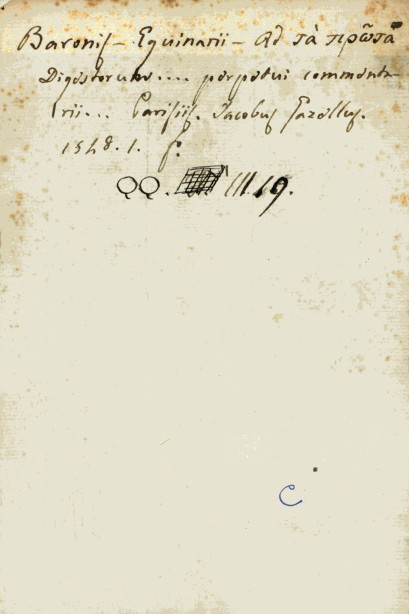 Baronis - Eguinarii - Ad τὰ πρῶτα
Digestorum.... perpetui commenta-
rii... Parisiis. Jacobus Gazellus.
1548. 1. f.º
QQ. III. 19.
C